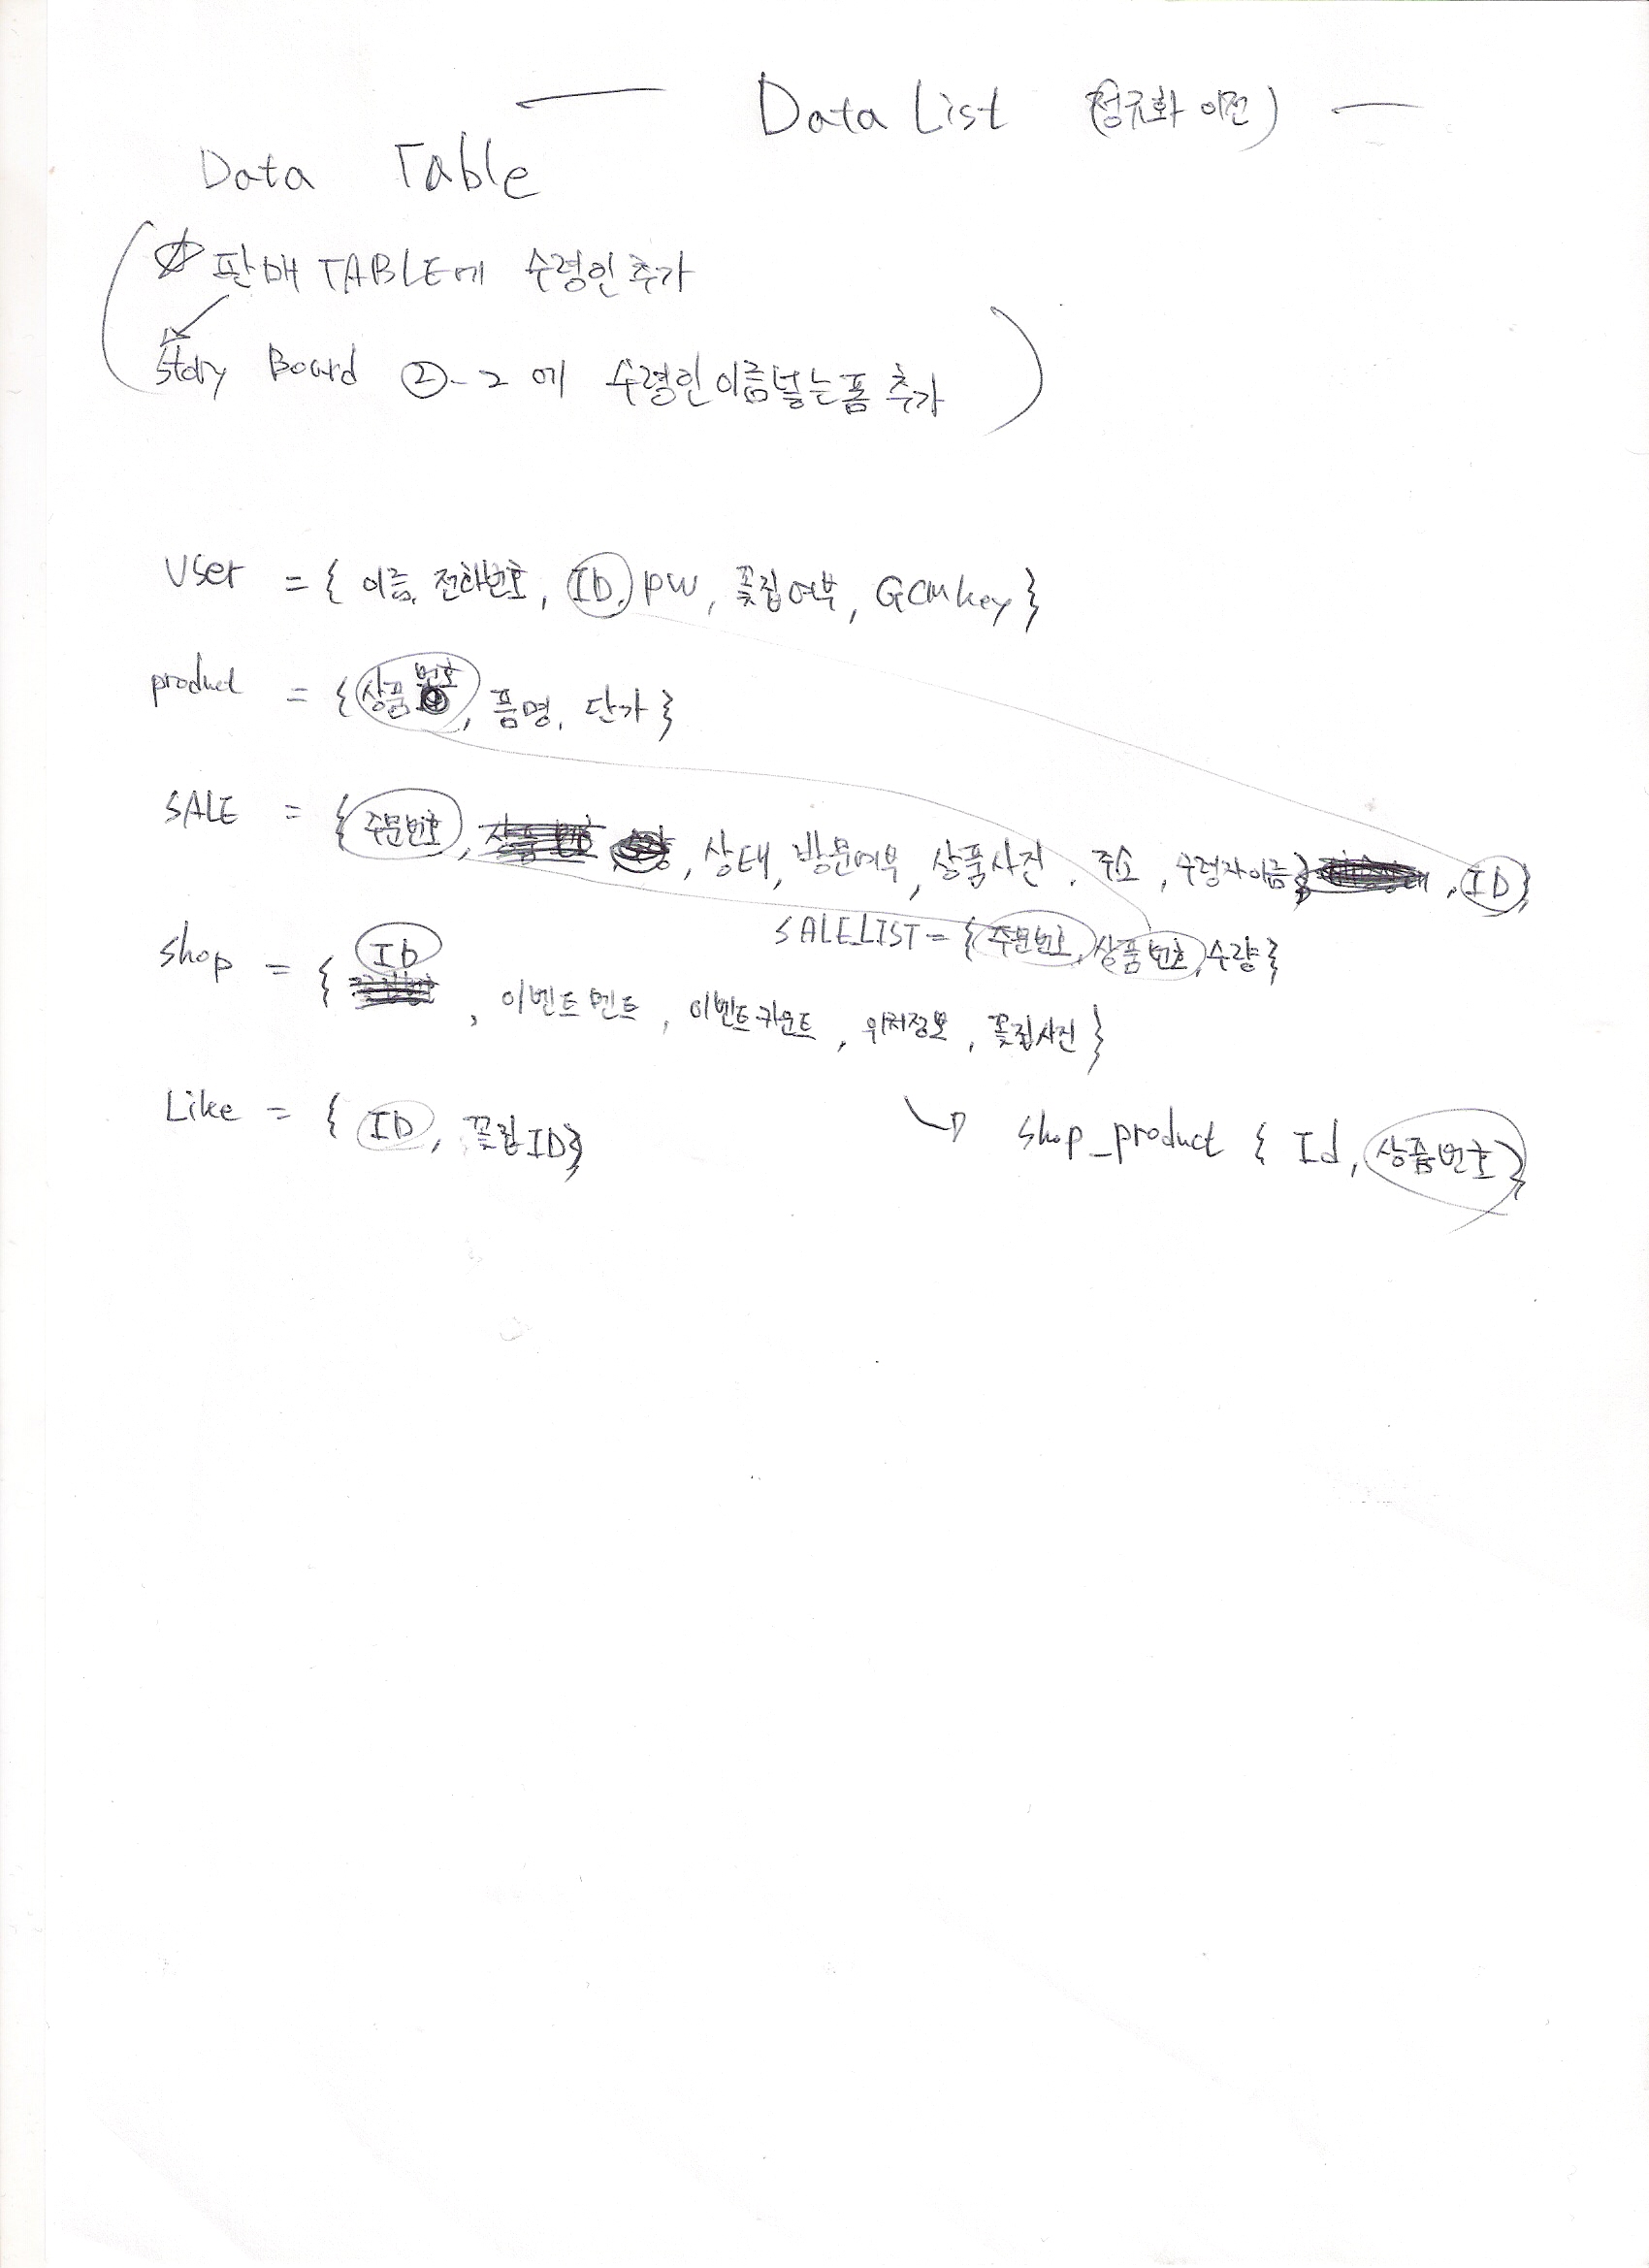 Data List (정규화 이전)
Data Table
☆ 판매 TABLE에 수령인 추가
Story Board ②-2 에 수령인이름넣는폼 추가
User = { 이름, 전화번호, ID, PW, 꽃집여부, GCMkey }
product = { 상품번호, 품명, 단가 }
SALE = { 주문번호, 상태, 방문여부, 상품사진, 주소, 수령자이름 } , ID}
SALELIST = { 주문번호, 상품번호, 수량 }
shop = { ID , 이벤트멘트, 이벤트카운트, 위치정보, 꽃집사진 }
Like = { ID, 꽃집ID}
shop_product { Id, 상품번호}